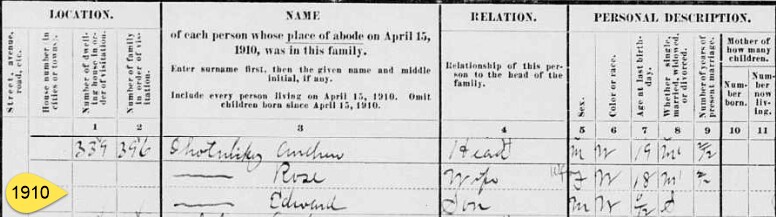 LOCATION.
NAME
of each person whose place of abode on April 15, 1910, was in this family.
Enter surname first, then the given name and middle initial, if any.
Include every person living on April 15, 1910. Omit children born since April 15, 1910.
RELATION.
Relationship of this person to the head of the family.
PERSONAL DESCRIPTION.
Street, avenue, road, etc.
House number in cities or towns.
Number of dwelling house in order of visitation.
Number of family in order of visitation.
Sex.
Color or race.
Age at last birthday.
Whether single, married, widowed, or divorced.
Number of years of present marriage.
Mother of how many children.
Number born.
Number now living.
1 2 3 4 5 6 7 8 9 10 11
339 396 Andrew Head M W 19 M1
Rose Wife F W 18 M1
Edward Son M W S
1910